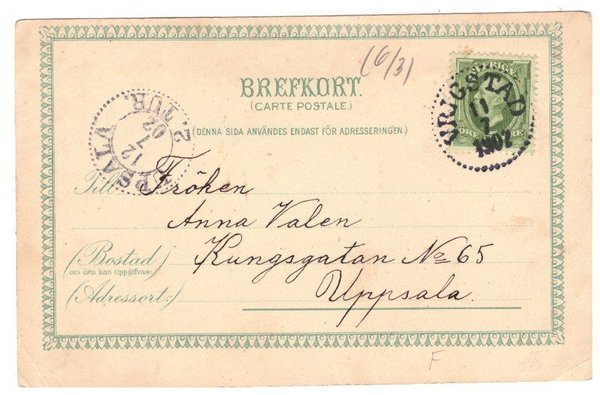 (6/3)
BREFKORT.
(CARTE POSTALE.)
(DENNA SIDA ANVÄNDES ENDAST FÖR ADRESSERINGEN.)
SVERIGE
GRIGSTAD
11
7
1902
UPSALA
2. TUR
12
7
02
Till Fröken
Anna Valen
(Bostad) Kungsgatan No 65
om den kan uppgifvas:
(Adressort:) Uppsala.
F